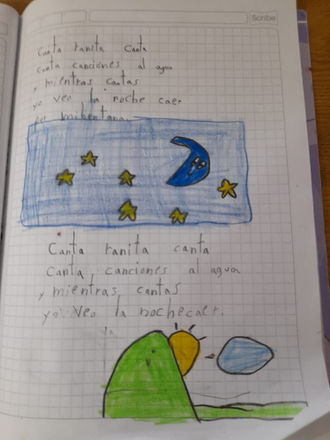 Scribe
Canta ranita canta
canta canciones al agua
y mientras cantas
yo veo la noche caer
por mibentana
Canta ranita canta
Canta canciones al agua
y mientras cantas
yo veo la nochecaer.